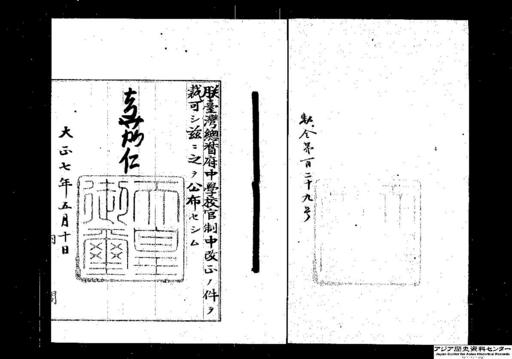 勅令第百二十九号
朕臺灣總督府中學校官制中改正ノ件ヲ
裁可シ茲ニ之ヲ公布セシム
嘉仁
天皇
御璽
大正七年五月十日
アジア歴史資料センター
Japan Center for Asian Historical Records